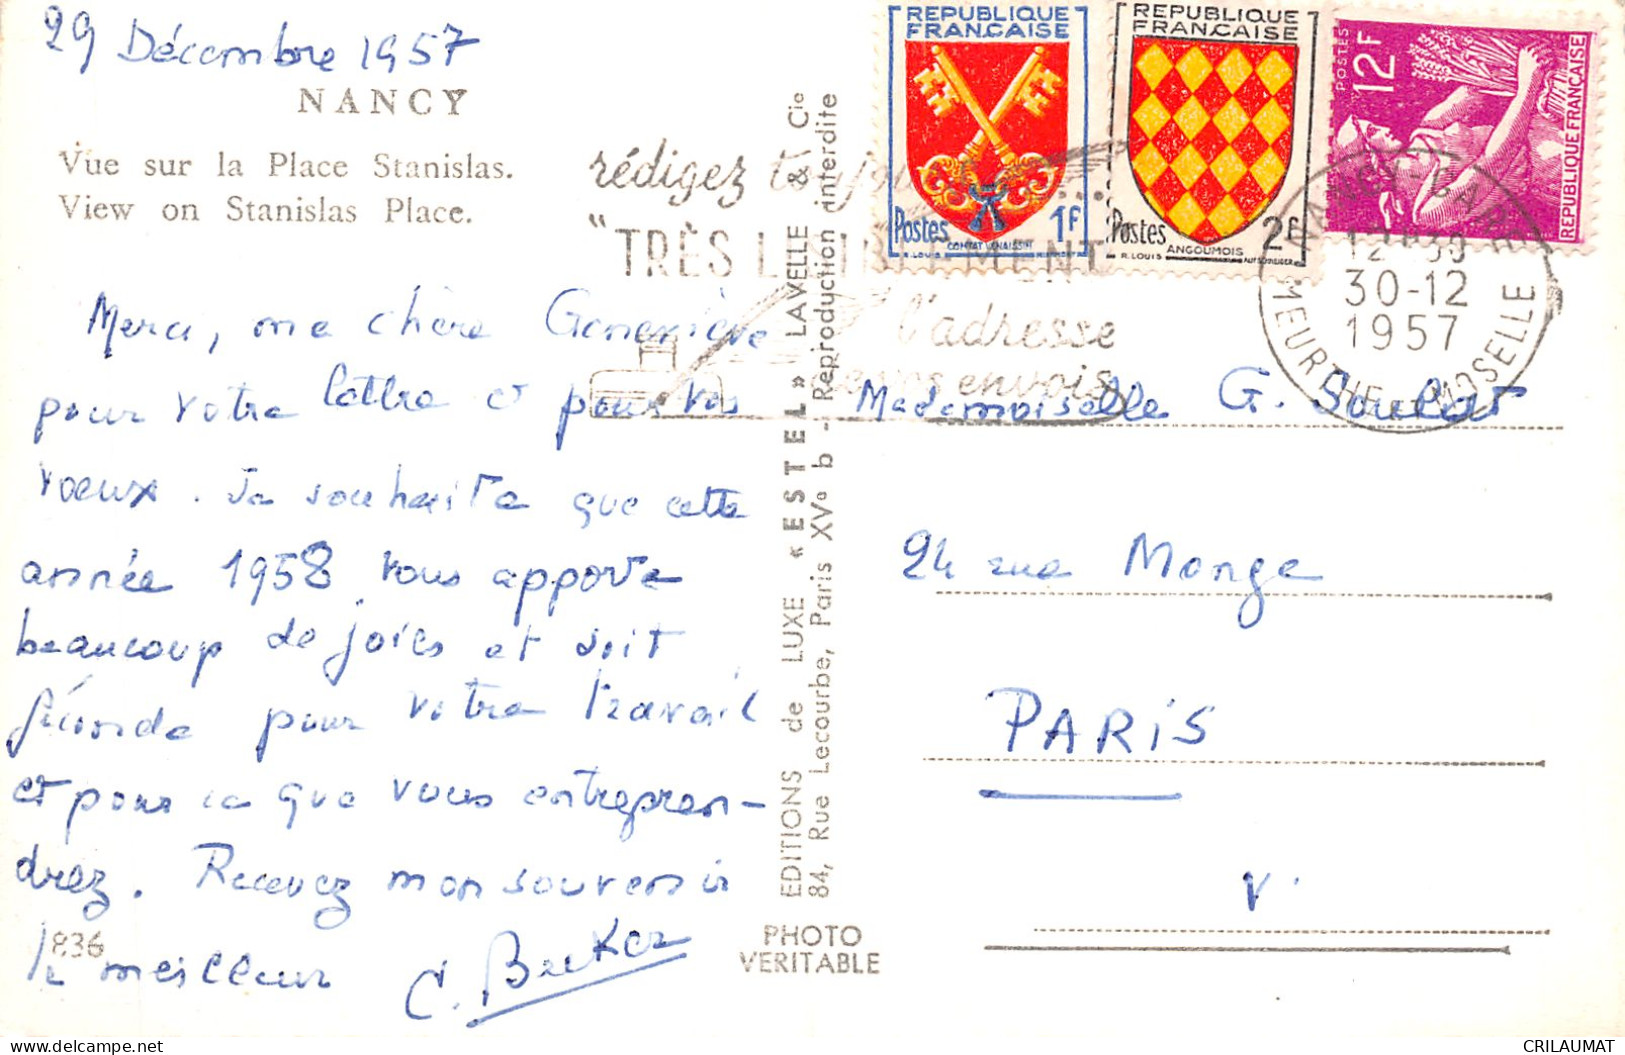 29 Décembre 1957
NANCY
Vue sur la Place Stanislas.
View on Stanislas Place.
Merci, ma chère Geneviève
pour votre lettre et pour vos
voeux. Je souhaite que cette
année 1958 vous apporte
beaucoup de joies et soit
féconde pour votre travail
et pour ce que vous entrepren-
drez. Recevez mon souvenir
le meilleur C. Becker
836
EDITIONS de LUXE « ESTEL » LAVELLE & Cie
84, Rue Lecourbe, Paris XVe b - Reproduction interdite
PHOTO
VERITABLE
rédigez toujours ...
"TRÈS LISIBLEMENT
l'adresse
de vos envois
REPUBLIQUE
FRANÇAISE
Postes 1F
COMTAT VENAISSIN
R. LOUIS
REPUBLIQUE
FRANÇAISE
Postes 2F
ANGOUMOIS
R. LOUIS
POSTES 12F
REPUBLIQUE FRANÇAISE
NANCY-GARE
12H30
30-12
1957
MEURTHE-ET-MOSELLE
Mademoiselle G. Soulat
24 rue Monge
PARIS
V.
CRILAUMAT